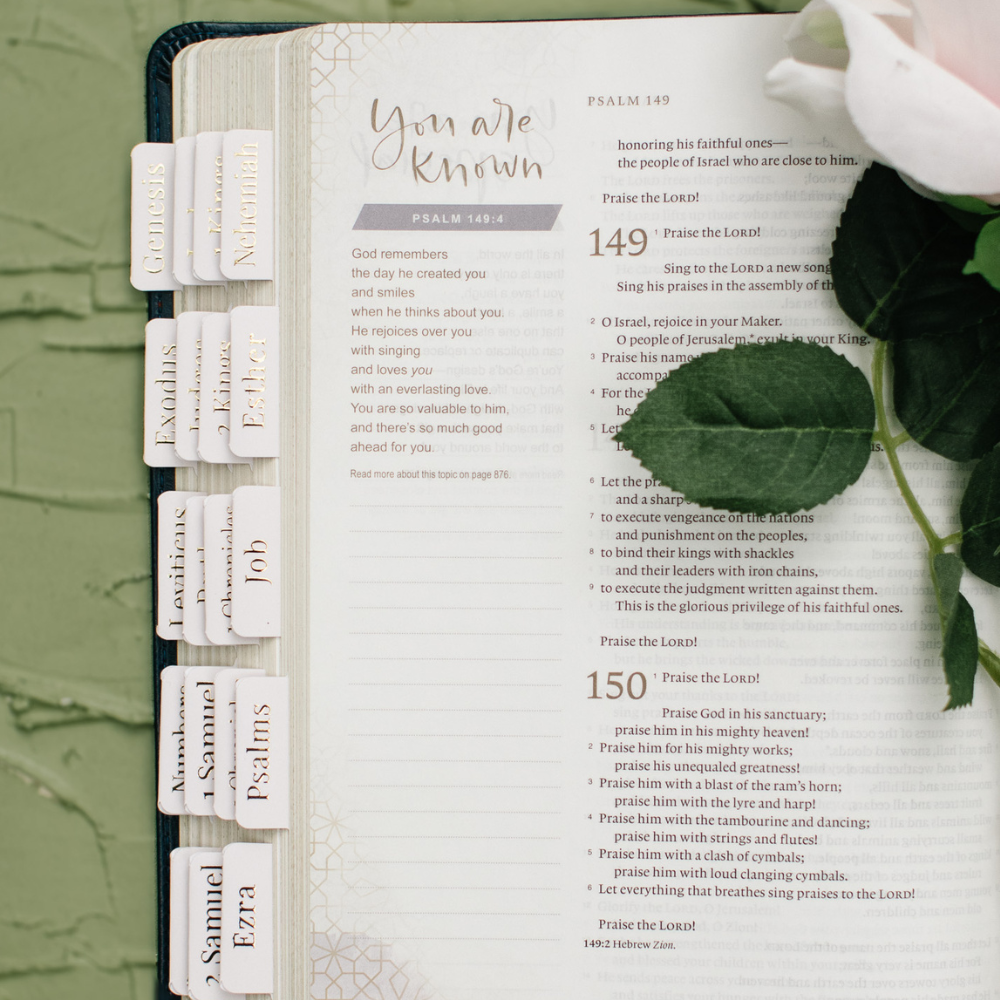 Genesis
Nehemiah
Exodus
2 Kings
Esther
Leviticus
Chronicles
Job
Numbers
1 Samuel
Psalms
2 Samuel
Ezra
You are
known
PSALM 149:4
God remembers
the day he created you
and smiles
when he thinks about you.
He rejoices over you
with singing
and loves you
with an everlasting love.
You are so valuable to him,
and there's so much good
ahead for you.
Read more about this topic on page 876.
PSALM 149
honoring his faithful ones—
the people of Israel who are close to him.
Praise the LORD!
149 1 Praise the LORD!
Sing to the LORD a new song
Sing his praises in the assembly of
2 O Israel, rejoice in your Maker.
O people of Jerusalem,* exult in your King.
3 Praise his name
4 For the
he
5 Let
6 Let the
and a sharp
7 to execute vengeance on the nations
and punishment on the peoples,
8 to bind their kings with shackles
and their leaders with iron chains,
9 to execute the judgment written against them.
This is the glorious privilege of his faithful ones.
Praise the LORD!
150 1 Praise the LORD!
Praise God in his sanctuary;
praise him in his mighty heaven!
2 Praise him for his mighty works;
praise his unequaled greatness!
3 Praise him with a blast of the ram's horn;
praise him with the lyre and harp!
4 Praise him with the tambourine and dancing;
praise him with strings and flutes!
5 Praise him with a clash of cymbals;
praise him with loud clanging cymbals.
6 Let everything that breathes sing praises to the LORD!
Praise the LORD!
149:2 Hebrew Zion.